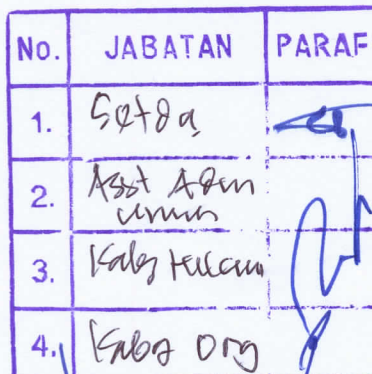 No. JABATAN PARAF
1. Setda
2. Asst Adm
umum
3. Kabag Hukum
4. Kabag Org